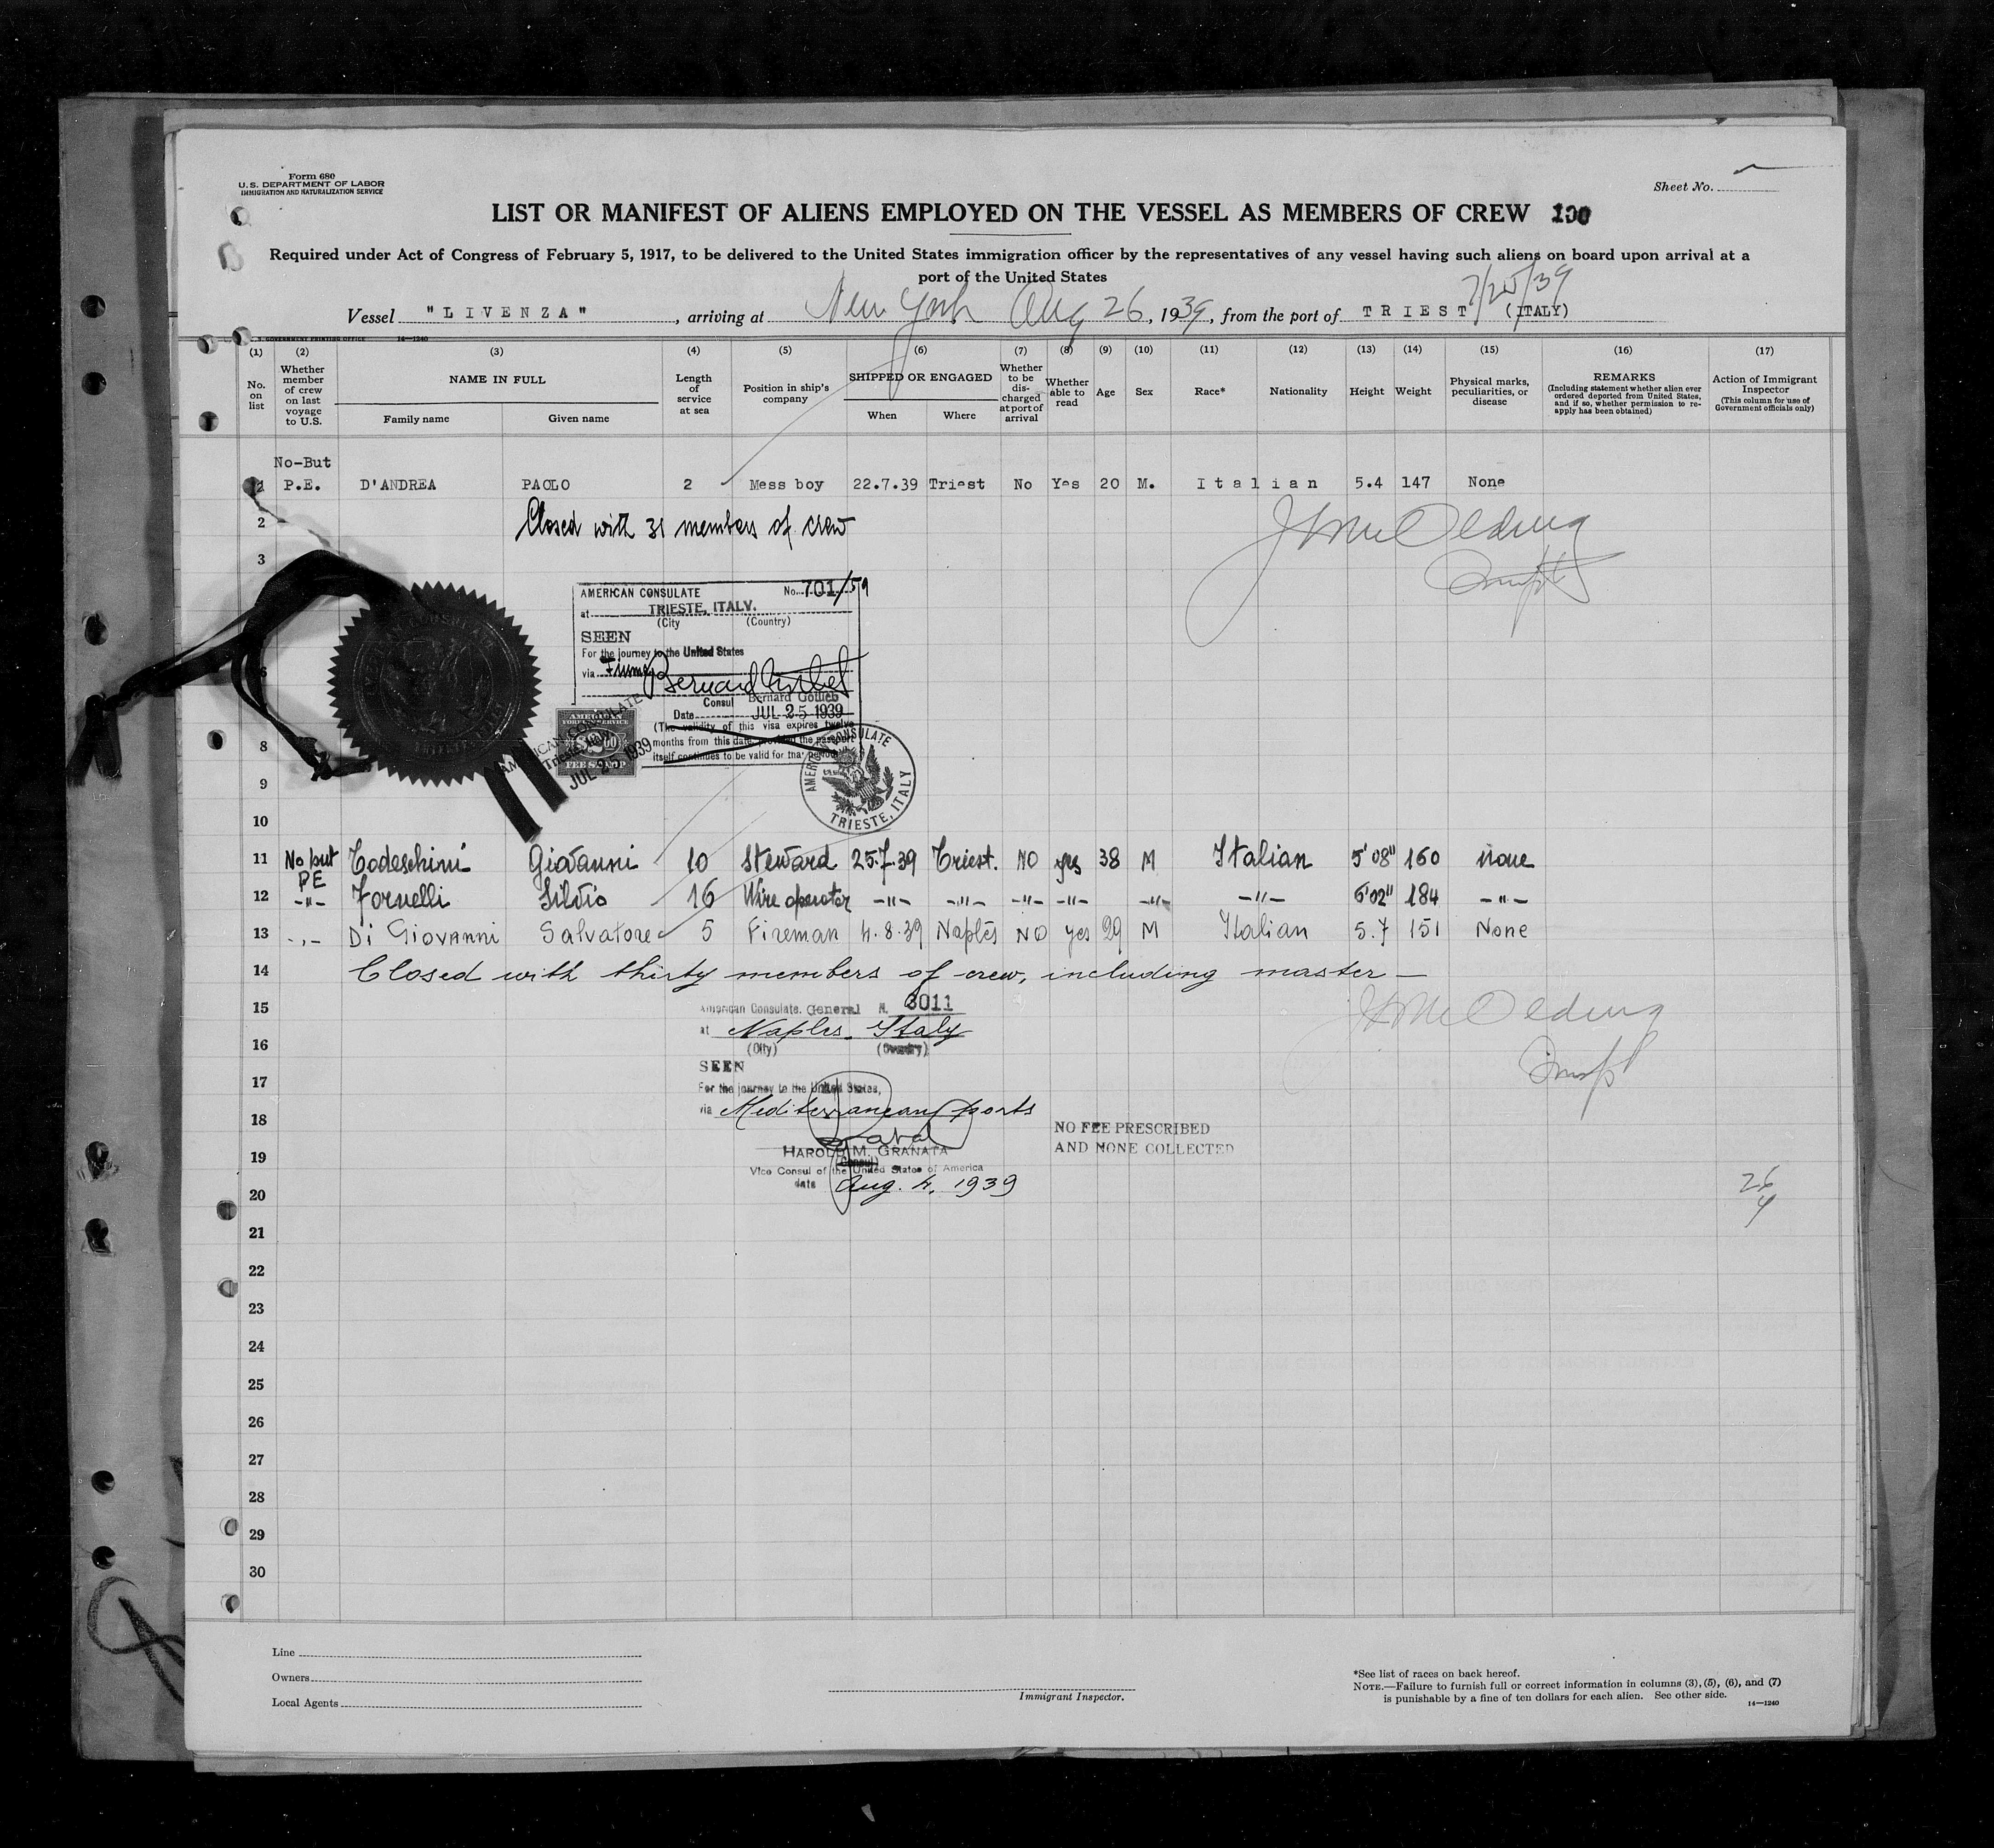 Form 680
U.S. DEPARTMENT OF LABOR
IMMIGRATION AND NATURALIZATION SERVICE
Sheet No.
LIST OR MANIFEST OF ALIENS EMPLOYED ON THE VESSEL AS MEMBERS OF CREW 100
Required under Act of Congress of February 5, 1917, to be delivered to the United States immigration officer by the representatives of any vessel having such aliens on board upon arrival at a
port of the United States
7/25/39
Vessel "LIVENZA", arriving at New York Aug 26, 1939, from the port of TRIEST (ITALY)
GOVERNMENT PRINTING OFFICE 14—1240
(1) (2) (3) (4) (5) (6) (7) (8) (9) (10) (11) (12) (13) (14) (15) (16) (17)
No. on list
Whether member of crew on last voyage to U.S.
NAME IN FULL
Family name
Given name
Length of service at sea
Position in ship's company
SHIPPED OR ENGAGED
When
Where
Whether to be discharged at port of arrival
Whether able to read
Age
Sex
Race*
Nationality
Height
Weight
Physical marks, peculiarities, or disease
REMARKS
(Including statement whether alien ever ordered deported from United States, and if so, whether permission to reapply has been obtained)
Action of Immigrant Inspector
(This column for use of Government officials only)
No-But
1 P.E. D'ANDREA PAOLO 2 Mess boy 22.7.39 Triest No Yes 20 M. Italian 5.4 147 None
2 Closed with 31 members of crew
3
AMERICAN CONSULATE No. 701/59
at TRIESTE, ITALY.
(City (Country)
SEEN
For the journey to the United States
via Fiume
Consul Bernard Gotlieb
Date JUL 25 1939
(The validity of this visa expires twelve
months from this date provided the passport
itself continues to be valid for that period
AMERICAN CONSULATE
JUL 25 1939
AMERICAN
FOREIGN SERVICE
FEE STAMP
AMERICAN CONSULATE
TRIESTE, ITALY
6
8
9
10
11 No but PE Todeschini Giovanni 10 Steward 25.7.39 Triest. NO yes 38 M Italian 5'08" 160 none
12 -"- Fornelli Silvio 16 Wire operator -"- -"- -"- -"- -"- -"- 6'02" 184 -"-
13 -"- Di Giovanni Salvatore 5 Fireman 4.8.39 Naples NO yes 29 M Italian 5.7 151 None
14 Closed with thirty members of crew, including master —
15 American Consulate, General N. 3011
at Naples. Italy
16 (City) (Country)
SEEN
17 For the journey to the United States,
via Mediterranean ports
18 NO FEE PRESCRIBED
AND NONE COLLECTED
19 HAROLD M. GRANATA
(Consul)
Vice Consul of the United States of America
20 date Aug. 4, 1939
26
4
21
22
23
24
25
26
27
28
29
30
Line
Owners
Local Agents
Immigrant Inspector.
*See list of races on back hereof.
NOTE.—Failure to furnish full or correct information in columns (3), (5), (6), and (7)
is punishable by a fine of ten dollars for each alien. See other side. 14—1240